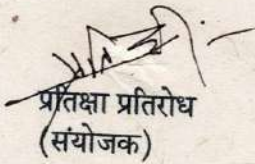 प्रतिक्षा प्रतिरोध
(संयोजक)